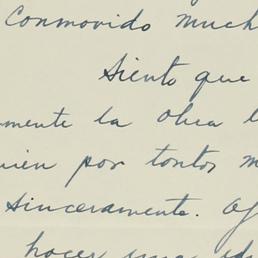 Conmovido much
Siento que
mente la obra l
uien por tontos m
sinceramente. Of
hacer una edi